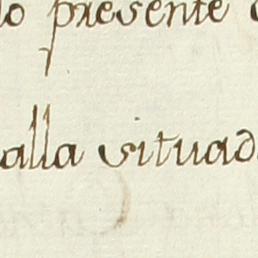 lo presente
alla situad